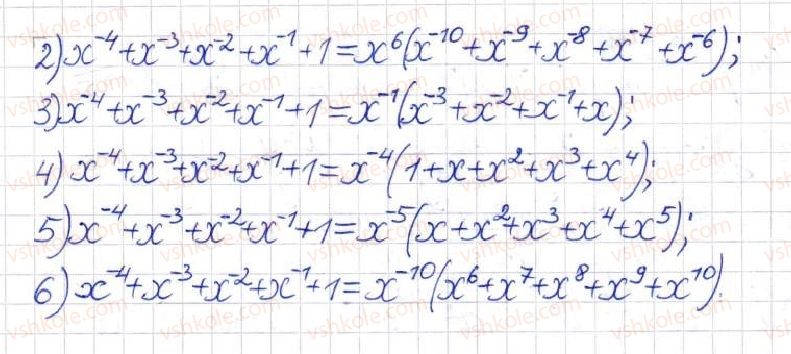 2) x⁻⁴+x⁻³+x⁻²+x⁻¹+1=x⁶(x⁻¹⁰+x⁻⁹+x⁻⁸+x⁻⁷+x⁻⁶);
3) x⁻⁴+x⁻³+x⁻²+x⁻¹+1=x⁻¹(x⁻³+x⁻²+x⁻¹+x);
4) x⁻⁴+x⁻³+x⁻²+x⁻¹+1=x⁻⁴(1+x+x²+x³+x⁴);
5) x⁻⁴+x⁻³+x⁻²+x⁻¹+1=x⁻⁵(x+x²+x³+x⁴+x⁵);
6) x⁻⁴+x⁻³+x⁻²+x⁻¹+1=x⁻¹⁰(x⁶+x⁷+x⁸+x⁹+x¹⁰).